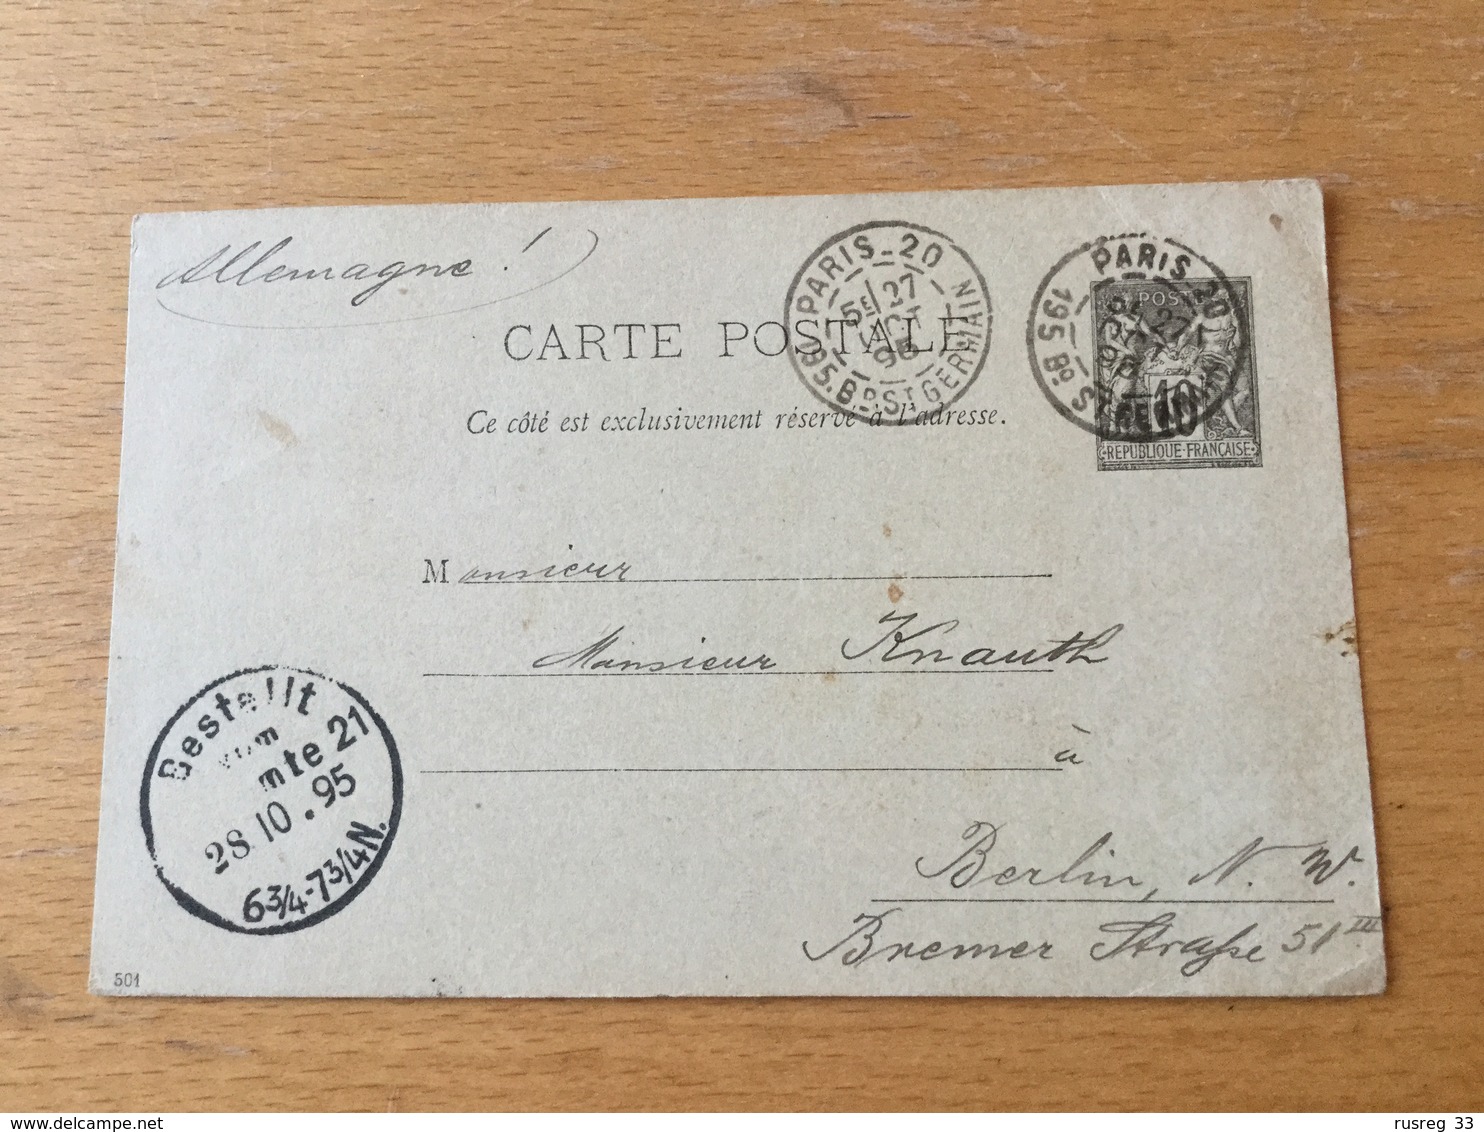 Allemagne!
PARIS-20
5E 27
OCT
95
195. Bd ST GERMAIN
PARIS-20
27
195 Bd ST GERMAIN
POST
10
REPUBLIQUE-FRANÇAISE
CARTE POSTALE
Ce côté est exclusivement réservé à l'adresse.
Monsieur
Monsieur Knauth
à
Berlin, N. W.
Bremer Straße 51 III
Bestellt
vom
mte 21
28 10.95
6 3/4-7 3/4 N.
501
rusreg 33